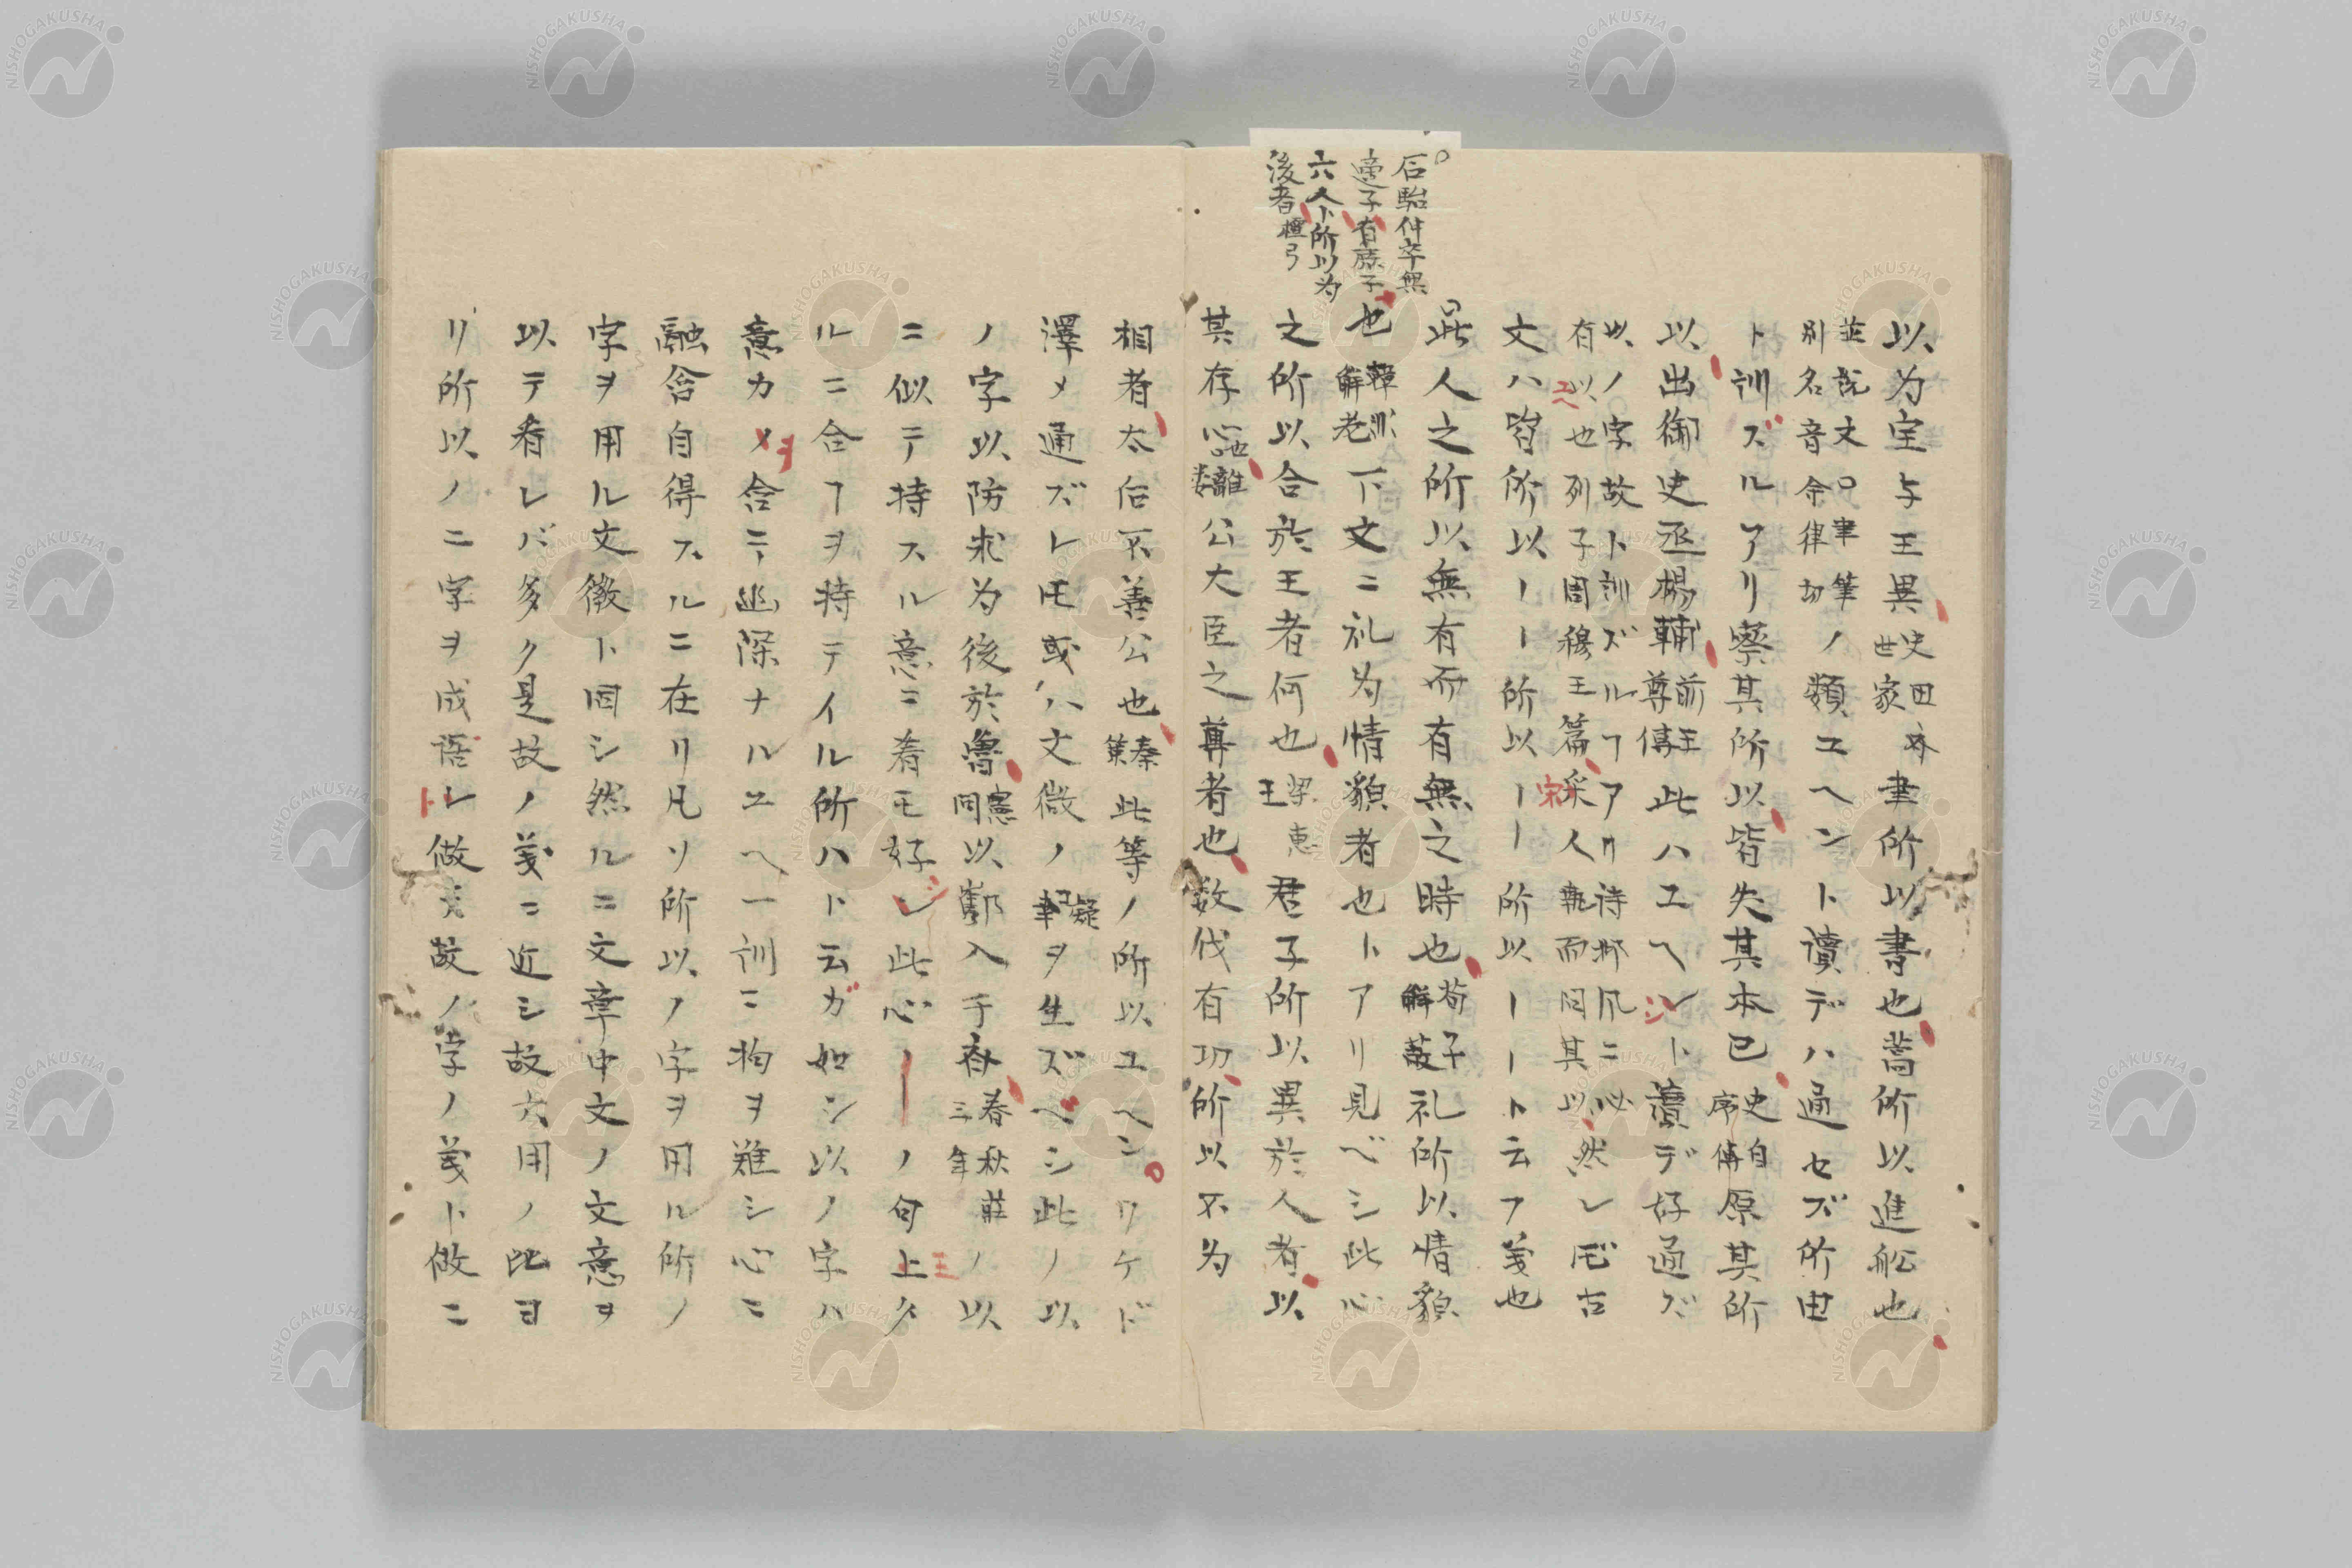 石駘仲卒無
適子有庶子
六人卜所以为
後者檀弓
以为宝与王異史田斉世家聿所以書也蒿所以進船也
並説文○聿筆別名音余律切ノ類ユヘント讀デハ通セズ所由
ト訓ズルアリ察其所以皆失其本已史自序傳原其所
以出御史丞楊輔前王尊傳此ハユヘント讀デ好通ズ
以ノ字故ト訓ズルヿアリ詩邶凨ニ必有以也列子周穆王篇宋人執而問其以然レ𪜈古
文ハ皆所以ーー所以ーー所以ーート云フ義也
此人之所以無有而有無之時也荀子解蔽礼所以情貌
也韓非解老下文ニ礼为情貌者也トアリ見ベシ此心
之所以合於王者何也梁恵王君子所以異於人者以
其存心也離婁公大臣之尊者也数伐有功所以不为
相者太后不善公也秦策此等ノ所以ユヘンワケド
澤メ通ズレ𪜈或ハ文微ノ疑ヲ生ズベシ此ノ以
ノ字以防求为後於魯憲問以酅入于斉春秋莊三年ノ以
ニ似テ持スル意ニ看モ好シ此心ーノ句上王多
ルニ合ヿヲ持テイル所ハト云ガ如シ以ノ字ハ
意カヲ含ニテ幽深ナルユヘ一訓ニ拘ヲ難シ心ニ
融会自得スルニ在リ凡ソ所以ノ字ヲ用ル所ノ
字ヲ用ル文徴ト同シ然ルニ文章中文ノ文意ヲ
以テ看レバ多ク是故ノ義ニ近シ故六用ノ此ヨ
リ所以ノ二字ヲ成語ト做テ故ノ字ノ義ト做ニ